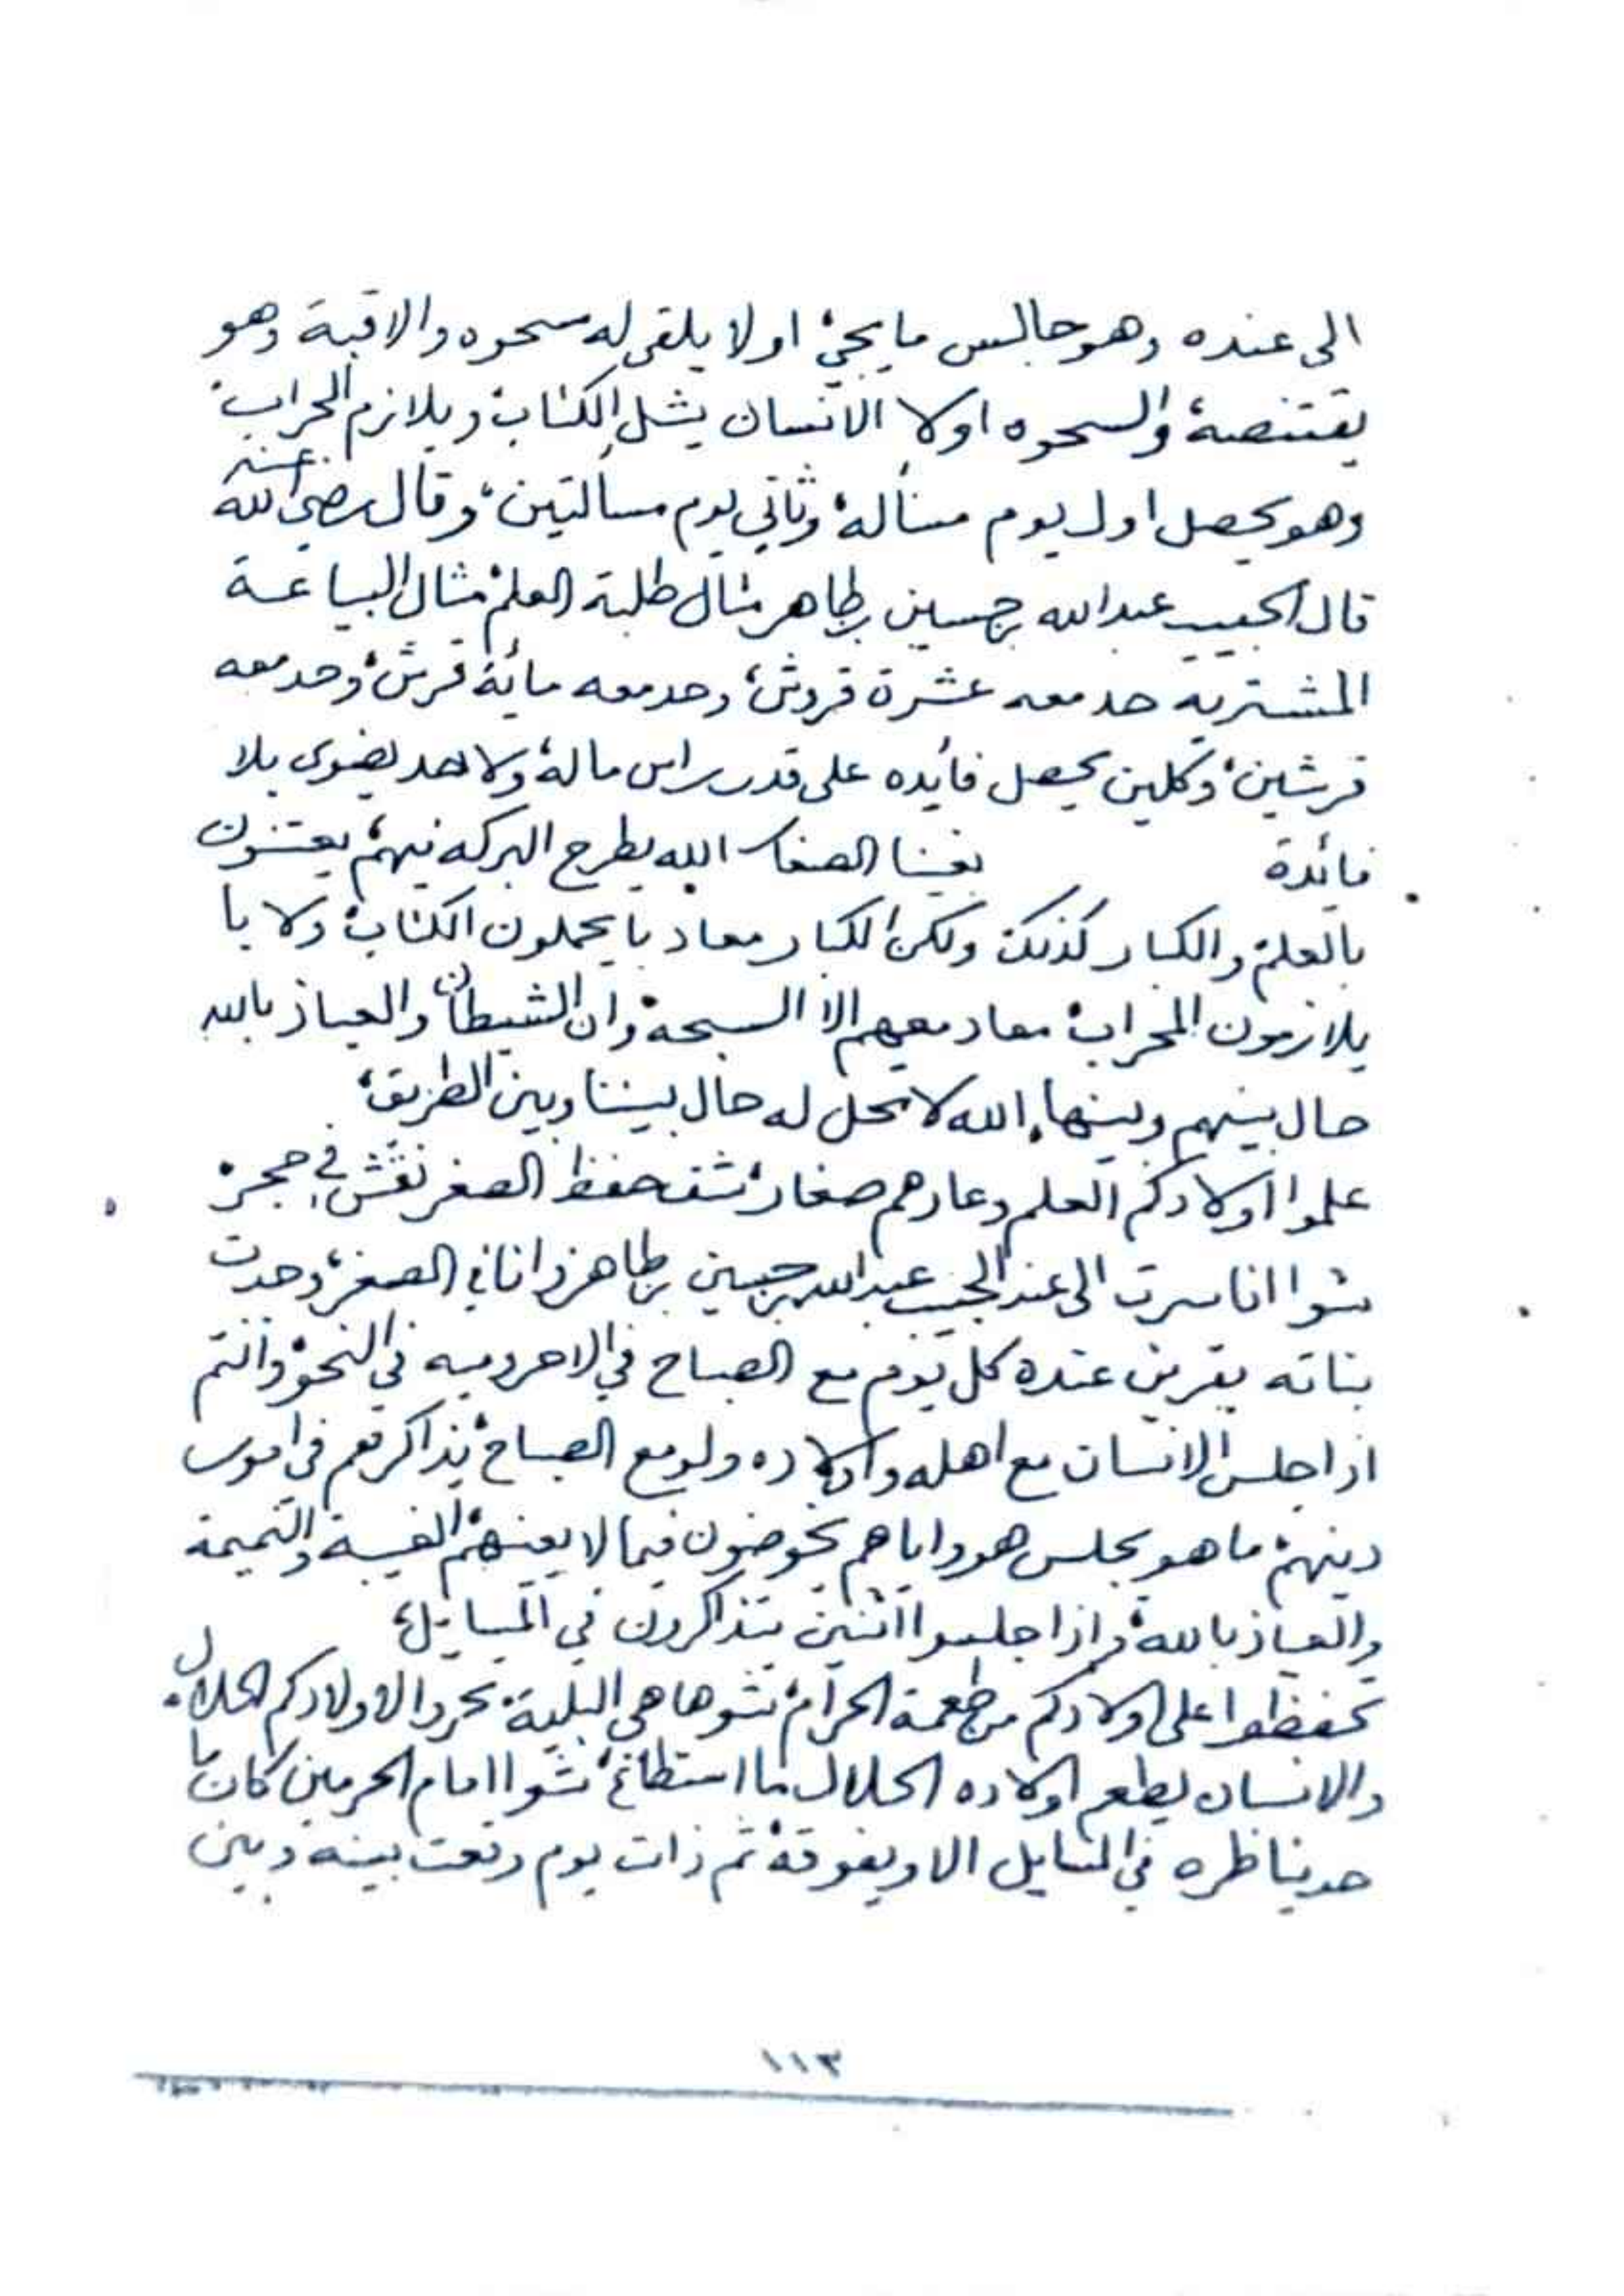 الى عنده وهو جالس ما يجيء اولا يلقي له سحوه والاقبة وهو
يقتنصه والسحوه اولا الانسان يشل الكتاب ويلازم المحراب
وهو يحصل اول يوم مسألة وثاني يوم مسألتين، وقال رضي الله عنه
قال الحبيب عبدالله بن حسين بن طاهر مثال طلبة العلم مثال البياعة
المشتريه حد معه عشرة قروش، وحد معه مائة قرش، وحد معه
قرشين، وكلين يحصل فائده على قدر راس ماله، ولا احد يضوي بلا
فائدة بغينا الصغار الله يطرح البركه فيهم، يعتنون
بالعلم، والكبار كذلك ولكن الكبار معاد با يحملون الكتاب، ولا با
يلازمون المحراب، معاد معهم الا السبحة، وان الشيطان والعياذ بالله
حال بينهم وبينها، الله لا يحل له حال بيننا وبين الطريق،
علموا اولادكم العلم وعادهم صغار، شف حفظ الصغر نقش في حجر
شوا انا سرت الى عند الحبيب عبدالله بن حسين بن طاهر وانا في الصغر، وحدت
بناته يقرين عنده كل يوم مع الصباح في الاجروميه في النحو، وانتم
اذا جلس الانسان مع اهله واولاده ولو مع الصباح، يذاكرهم في امور
دينهم، ما هو يجلس هو واياهم يخوضون فيما لا يعنيهم، الغيبة والنميمة
والعياذ بالله، واذا جلسوا اثنين يتذاكرون في المسايل،
تحفظوا على اولادكم من طعمة الحرام، شوها هي البلية، تحروا لاولادكم الحلال.
والانسان يطعم اولاده الحلال ما استطاع، شوا امام الحرمين كان ما
حد يناظره في المسايل الا ويفوقه، ثم ذات يوم وقعت بينه وبين
١١٣